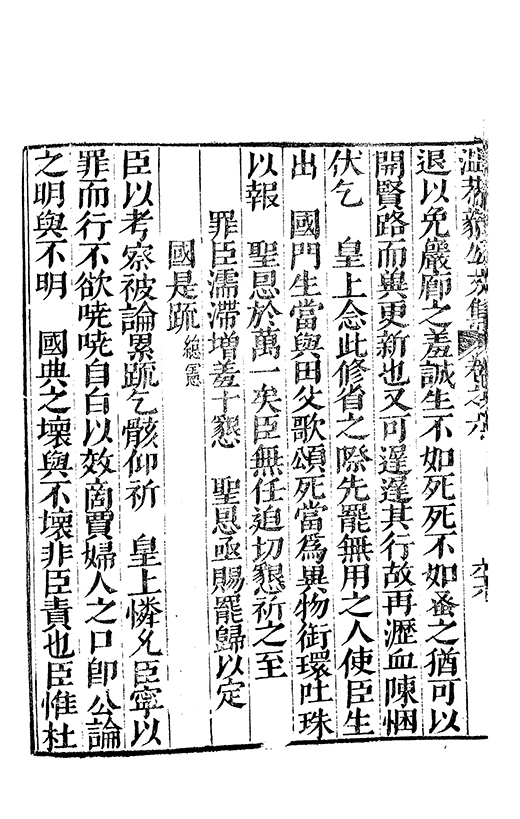 溫恭毅公文集 卷之六
退以免嚴廊之羞誠生不如死死不如蚤之猶可以
開賢路而與更新也又可遲遲其行故再瀝血陳悃
伏乞 皇上念此修省之際先罷無用之人使臣生
出 國門生當與田父歌頌死當爲異物銜環吐珠
以報 聖恩於萬一矣臣無任迫切懇祈之至
罪臣濡滯增羞十懇 聖恩亟賜罷歸以定
國是疏 總憲
臣以考察被論累疏乞骸仰祈 皇上憐允臣寧以
罪而行不欲嘵嘵自白以效啇賈婦人之口卽公論
之明與不明 國典之壞與不壞非臣責也臣惟杜